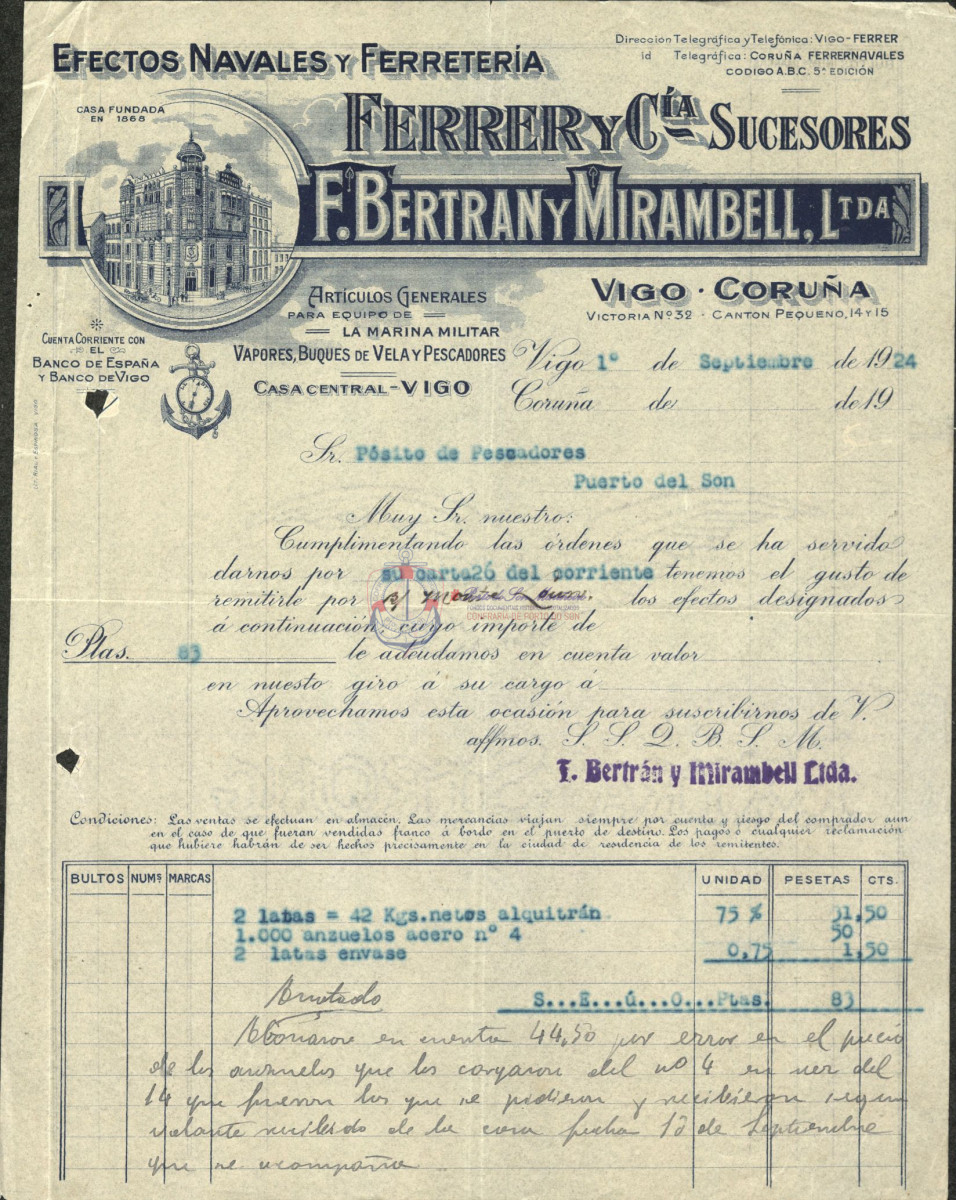 EFECTOS NAVALES Y FERRETERÍA
Dirección Telegráfica y Telefónica: VIGO-FERRER
id Telegráfica: CORUÑA FERRERNAVALES
CODIGO A.B.C. 5ª EDICIÓN
CASA FUNDADA
EN 1868
FERRER Y CÍA SUCESORES
F. BERTRAN Y MIRAMBELL, LTDA
ARTÍCULOS GENERALES
PARA EQUIPO DE
LA MARINA MILITAR
VAPORES, BUQUES DE VELA Y PESCADORES
CASA CENTRAL - VIGO
VIGO · CORUÑA
VICTORIA Nº 32 - CANTON PEQUENO, 14 Y 15
CUENTA CORRIENTE CON
EL
BANCO DE ESPAÑA
Y BANCO DE VIGO
Vigo 1º de Septiembre de 1924
Coruña de de 19
Sr. Pósito de Pescadores
Puerto del Son
Muy Sr. nuestro:
Cumplimentando las órdenes que se ha servido
darnos por su carta 26 del corriente tenemos el gusto de
remitirle por los efectos designados
á continuación, cuyo importe de
CONFRARÍA DE PORTO DO SON
Ptas. 83 le adeudamos en cuenta valor
en nuesto giro á su cargo á
Aprovechamos esta ocasión para suscribirnos de V.
affmos. S. S. Q. B. S. M.
F. Bertrán y Mirambell Ltda.
Condiciones: Las ventas se efectuan en almacén. Las mercancias viajan siempre por cuenta y riesgo del comprador aun
en el caso de que fueran vendidas franco á bordo en el puerto de destino. Los pagos ó cualquier reclamación
que hubiere habrán de ser hechos precisamente en la ciudad de residencia de los remitentes.
BULTOS NUMS MARCAS UNIDAD PESETAS CTS.
2 latas = 42 Kgs.netos alquitrán 75 % 31,50
1.000 anzuelos acero nº 4 50
2 latas envase 0,75 1,50
Anotado S...E...ú...O...Ptas. 83
Abonaron en cuenta 44,50 por error en el precio
de los anzuelos que los cargaron del nº 4 en vez del
14 que fueron los que se pidieron y recibieron según
volante recibido de la casa fecha de Septiembre
que se acompaña